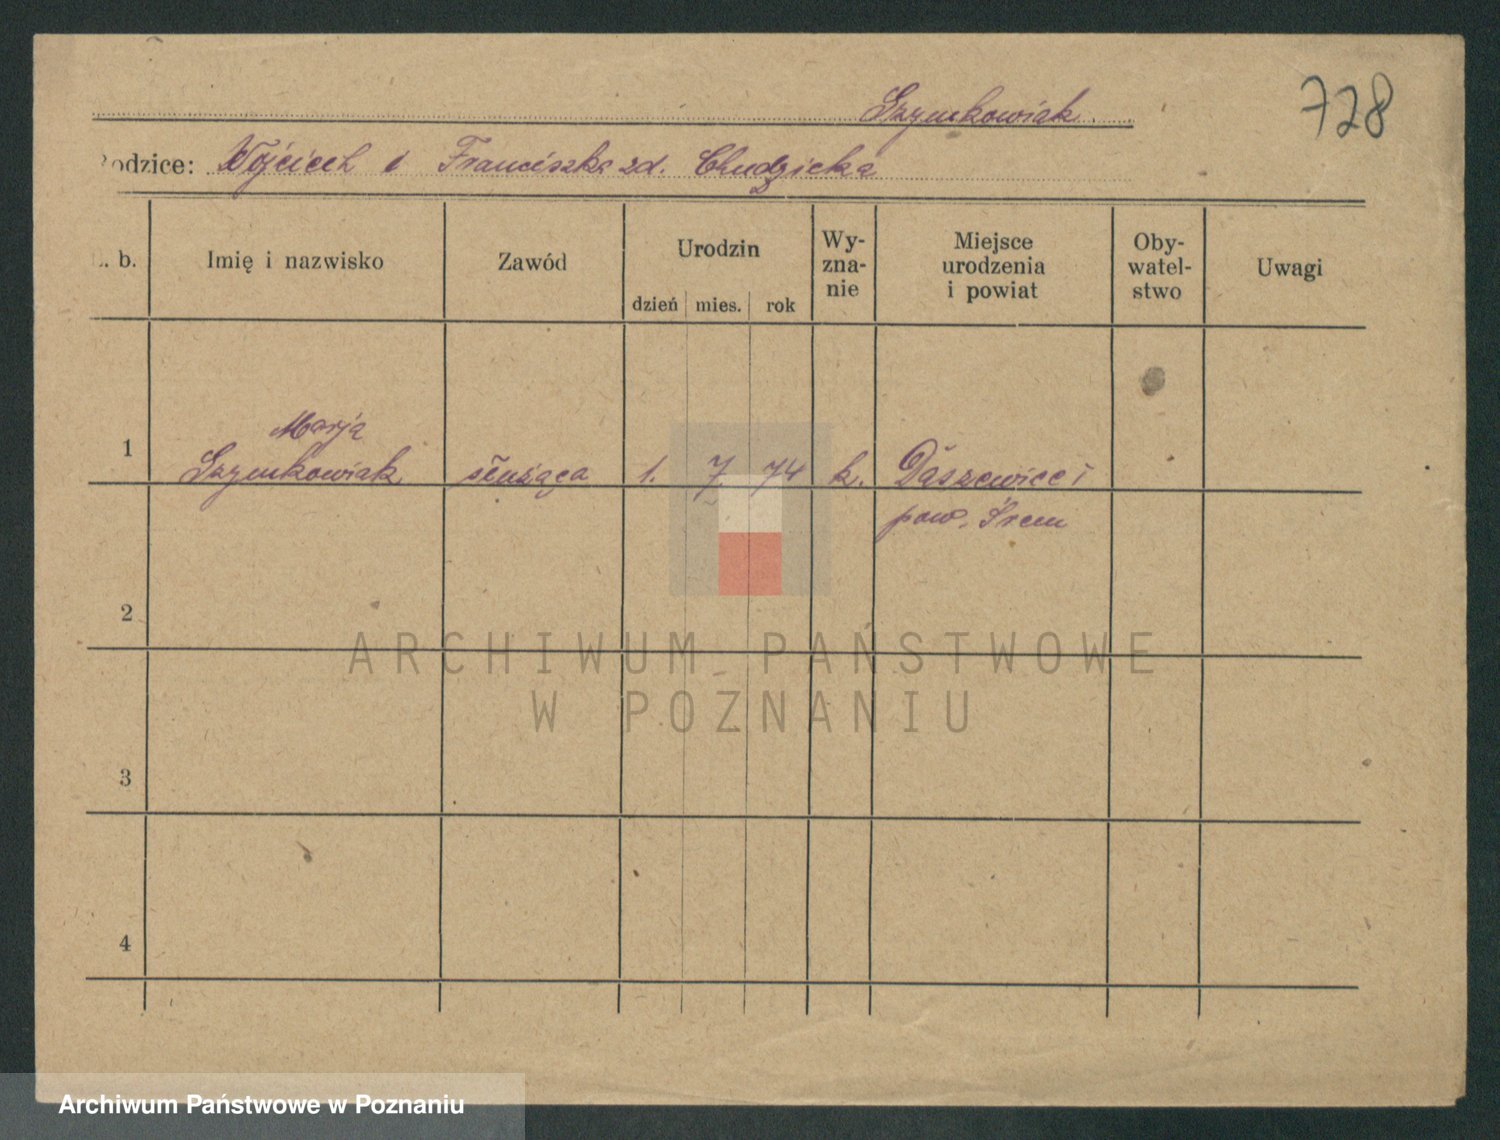 Szymkowiak.
728
Rodzice: Wojciech i Franciszka zd. Chudzicka
L. b.
Imię i nazwisko
Zawód
Urodzin
dzień mies. rok
Wy-
zna-
nie
Miejsce
urodzenia
i powiat
Oby-
watel-
stwo
Uwagi
1
Marja
Szymkowiak
służąca
1. 7 74
k.
Daszewice
pow. Śrem
2
3
4
ARCHIWUM PAŃSTWOWE
W POZNANIU
Archiwum Państwowe w Poznaniu